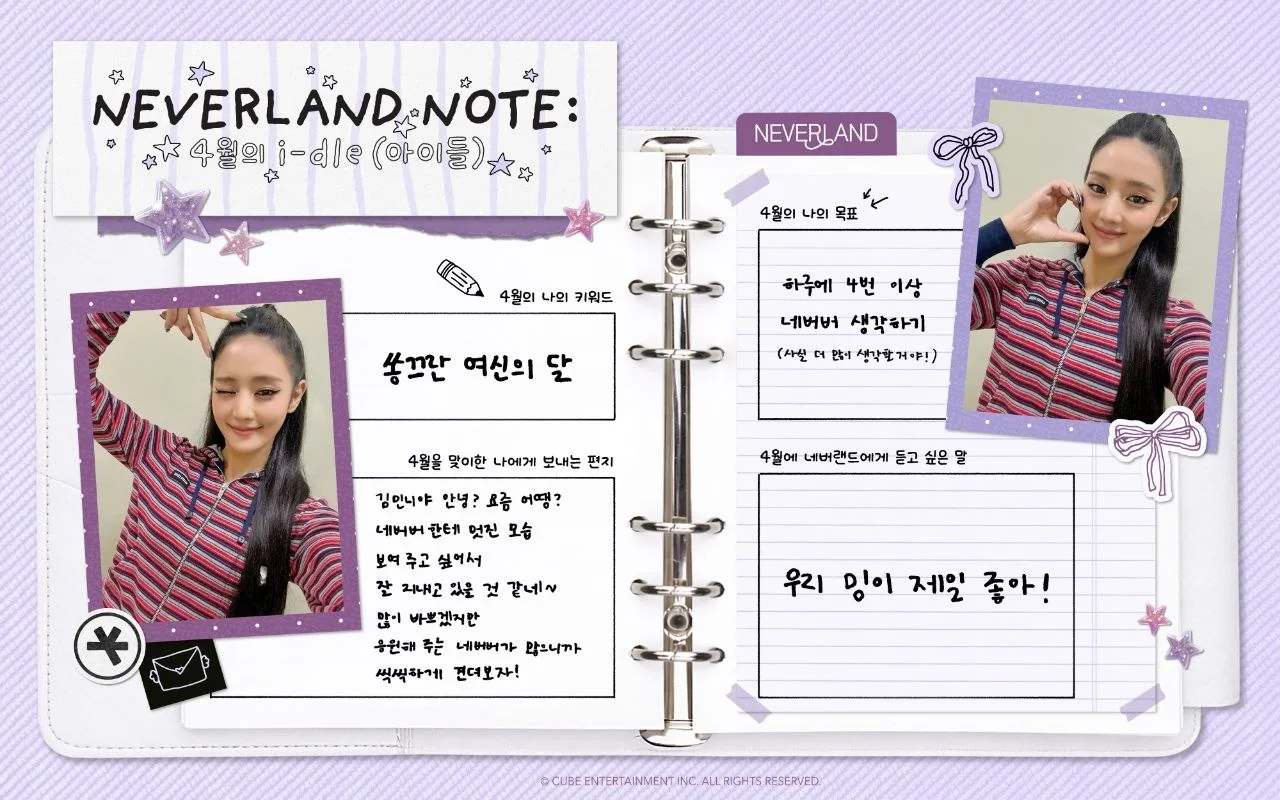 NEVERLAND NOTE:
4월의 i-dle (아이들)
4월의 나의 키워드
쏭끄란 여신의 달
4월을 맞이한 나에게 보내는 편지
김민니야 안녕? 요즘 어땡?
네버버한테 멋진 모습
보여 주고 싶어서
잘 지내고 있을 것 같네~
많이 바쁘겠지만
응원해 주는 네버버가 많으니까
씩씩하게 견뎌보자!
NEVERLAND
4월의 나의 목표
하루에 4번 이상
네버버 생각하기
(사실 더 많이 생각할거야!)
4월에 네버랜드에게 듣고 싶은 말
우리 밍이 제일 좋아!
© CUBE ENTERTAINMENT INC. ALL RIGHTS RESERVED.